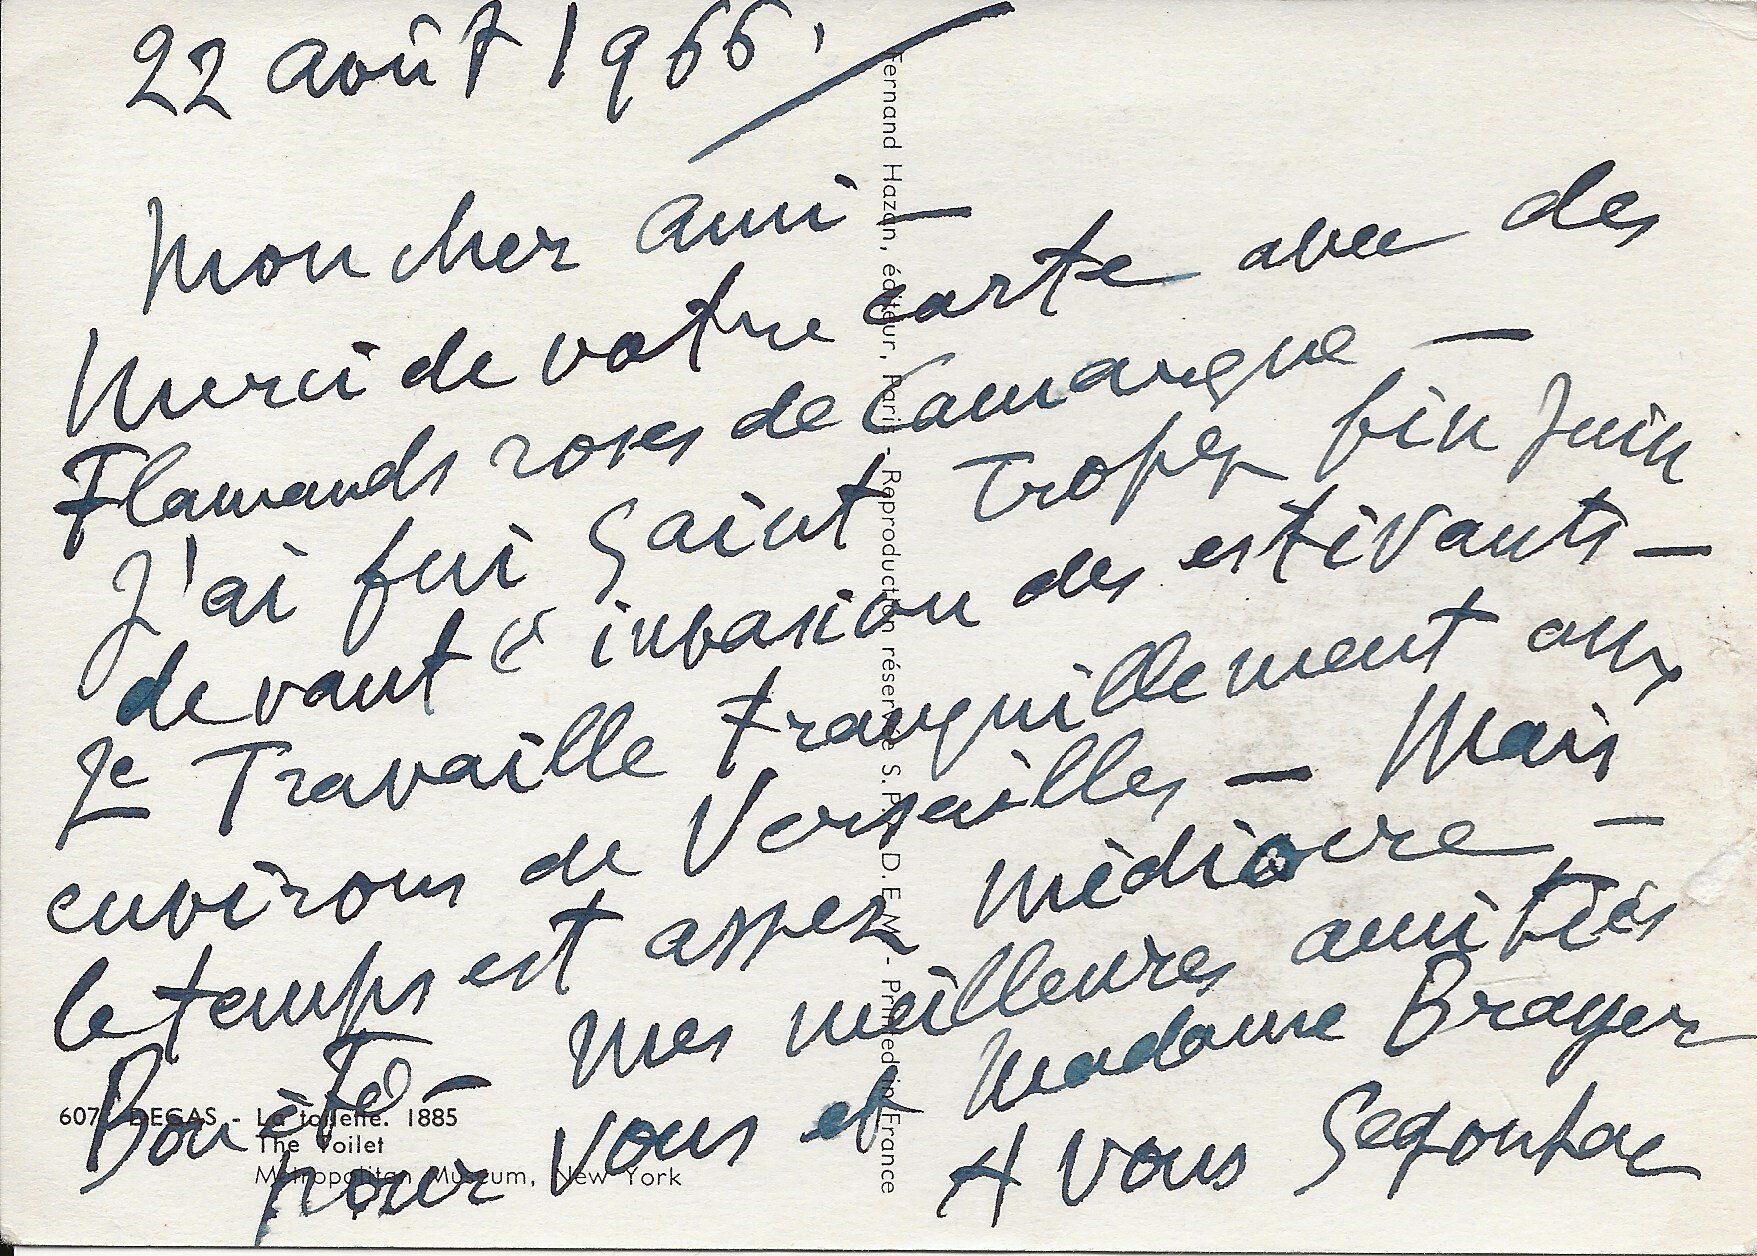 22 août 1966.
Mon cher ami —
Merci de votre carte avec des
Flamands roses de Camargue —
J'ai fui Saint Tropez fin Juin
devant l'invasion des estivants —
Je Travaille tranquillement aux
environs de Versailles — Mais
le temps est assez médiocre —
Bon été — Mes meilleures amitiés
pour vous et Madame Brayer
A vous Segonzac
DEGAS - La toilette. 1885
The Toilet
Metropolitan Museum, New York
Fernand Hazan, éditeur, Paris - Reproduction réservée S.P.A.D.E.M. - Printed in France